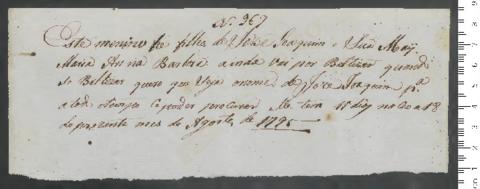 N. 967
Este menino he filho de José Joaquim e Sua May
Maria Anna Barbra ainda vai por Baltizar quando
se Baltizar quero que Seja onome de José Joaquim p.ª
atodo otempo Se poder procurar no dia 18
do prezente mes de Agosto de 1795